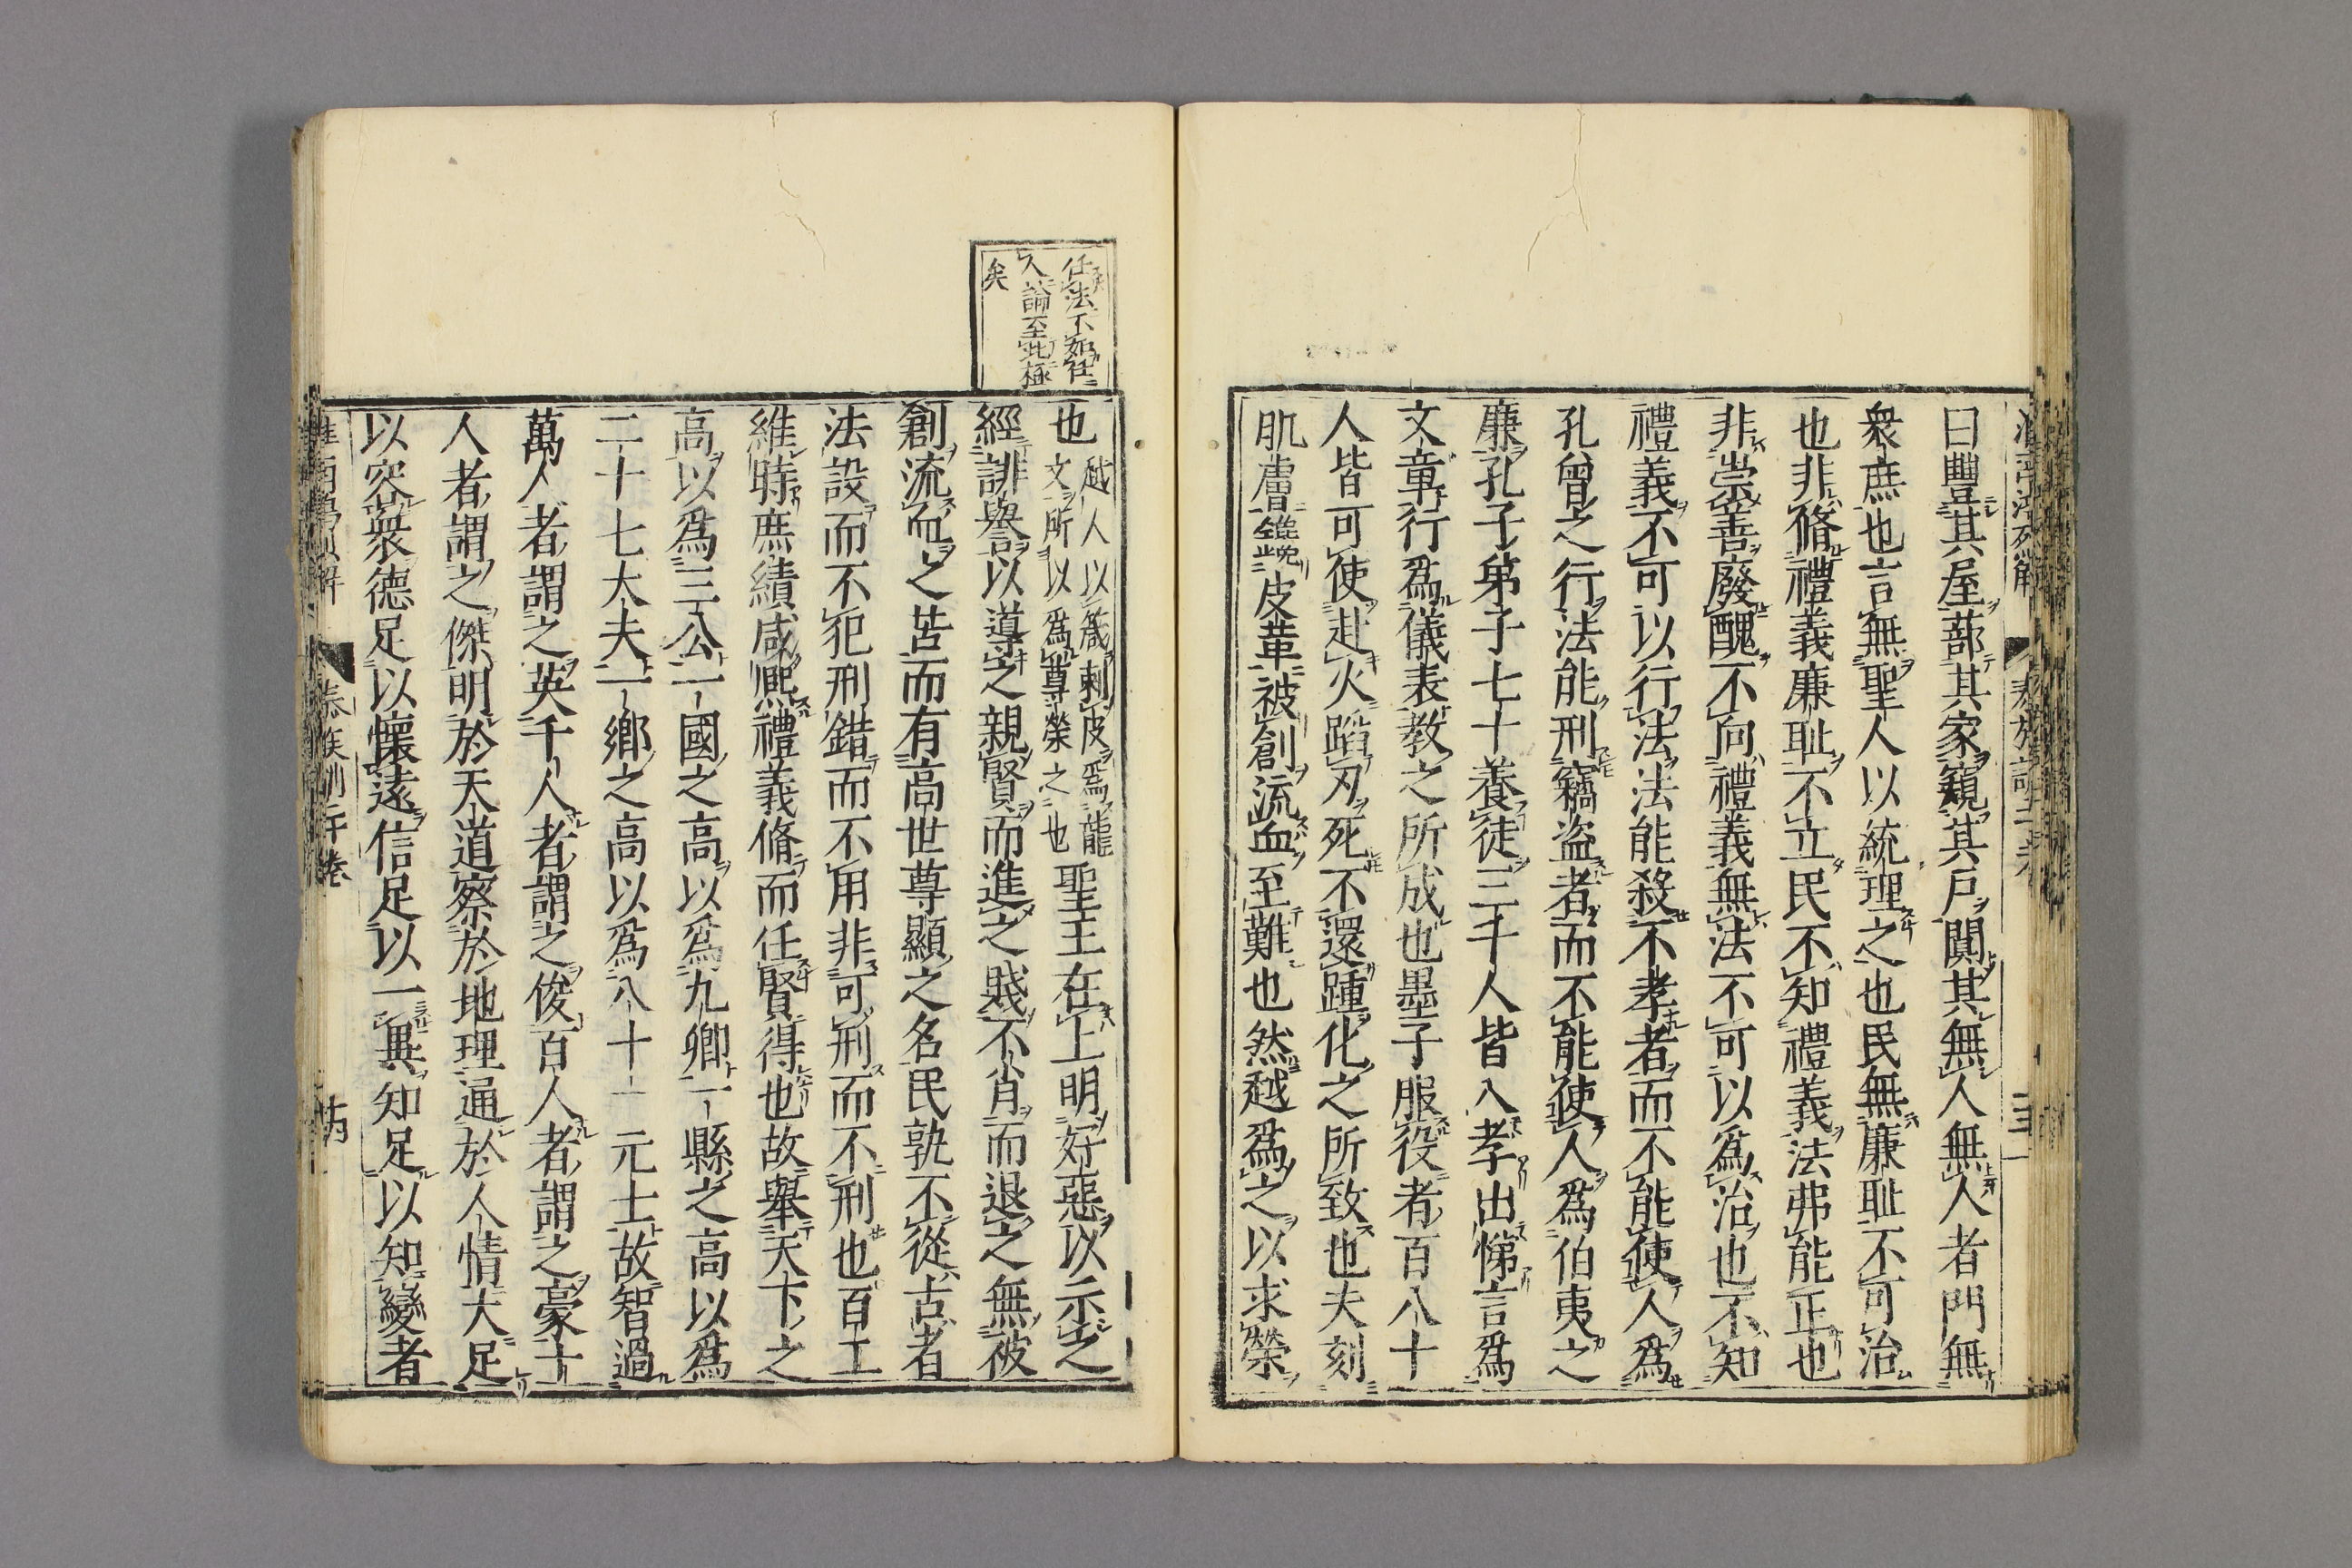 曰豐其屋蔀其家窺其戶闃其無人無人者門無
衆庶也言無聖人以統理之也民無廉耻不可治
也非脩禮義廉耻不立民不知禮義法弗能正也
非崇善廢醜不向禮義無法不可以爲治也不知
禮義不可以行法法能殺不孝者而不能使人爲
孔曾之行法能刑竊盜者而不能使人爲伯夷之
廉孔子弟子七十養徒三千人皆入孝出悌言爲
文章行爲儀表教之所成也墨子服役者百八十
人皆可使赴火蹈刃死不還踵化之所致也夫刻
肌膚鑱皮革被創流血至難也然越爲之以求榮
任法不如任
人論至此極
矣
也越人以箴刺皮爲龍
文所以爲尊榮之也聖王在上明好惡以示之
經誹譽以導之親賢而進之賤不肖而退之無被
創流血之苦而有高世尊顯之名民孰不從古者
法設而不犯刑錯而不用非可刑而不刑也百工
維時庶績咸熙禮義脩而任賢得也故舉天下之
高以爲三公一國之高以爲九卿一縣之高以爲
二十七大夫一鄉之高以爲八十一元士故智過
萬人者謂之英千人者謂之俊百人者謂之豪十
人者謂之傑明於天道察於地理通於人情大足
以容衆德足以懷遠信足以一異知足以知變者